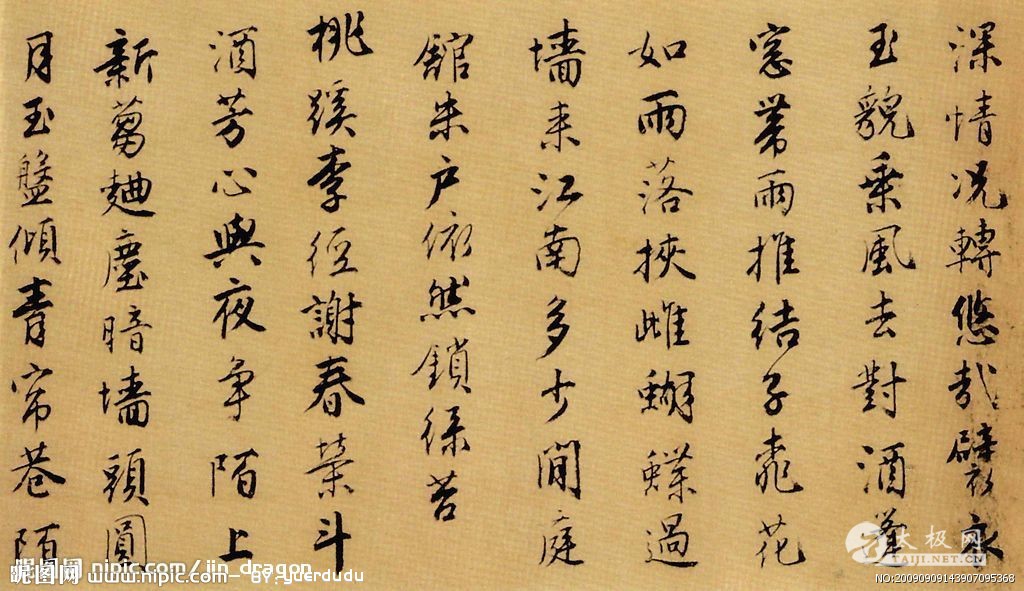 深情况轉悠哉永
玉貌乘風去對酒
窓帶雨推結子桃花
如雨落挾雌蝴蝶過
墻来江南多少間庭
舘朱户依然鎖綠苔
桃蹊李徑謝春榮斗
酒芳心與夜争陌上
新蒭麯塵暗墻頭圓
月玉盤傾青帘巷陌
昵图网 nipic.com/jin_dragon
昵图网 www.nipic.com BY:yuerdudu
太极网
TAIJI.NET.CN
NO:20090909143907095368